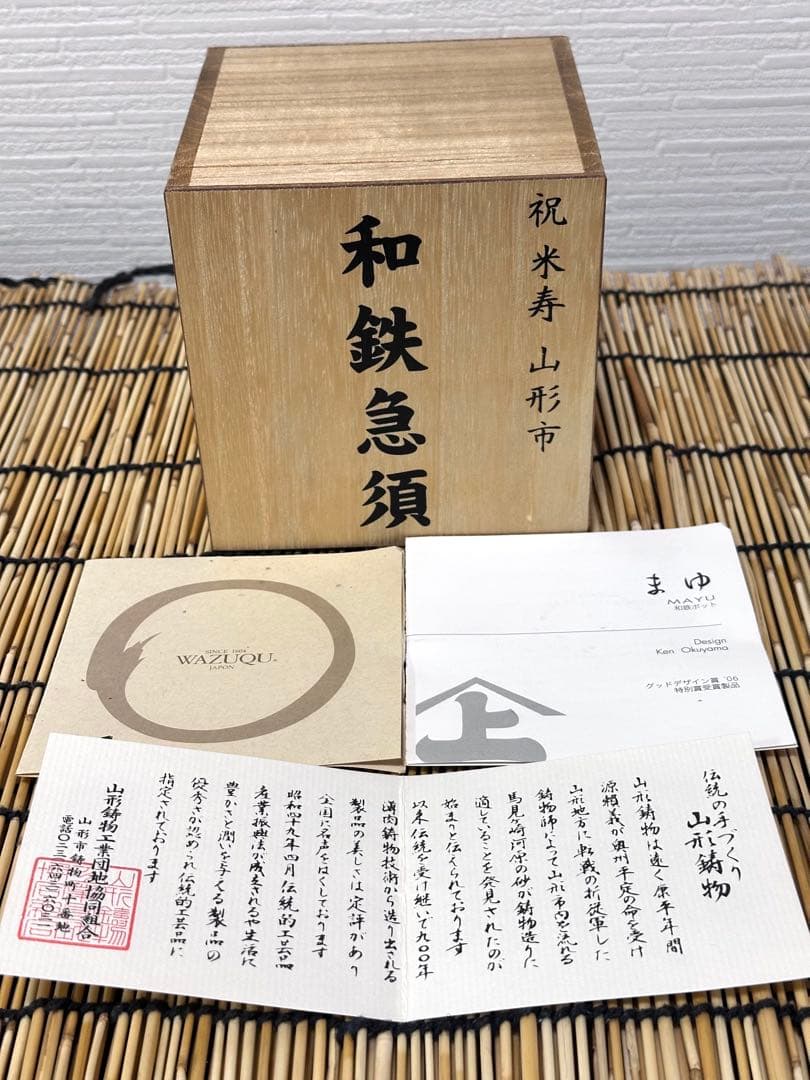 祝 米寿 山形市
和鉄急須
SINCE 1604
WAZUQU®
JAPAN
まゆ
MAYU
和鉄ポット
Design
Ken Okuyama
グッドデザイン賞 '06
特別賞受賞製品
上
伝統の手づくり
山形鋳物
山形鋳物は遠く康平年間
源頼義が奥州平定の命を受け
山形地方に転戦の折従軍した
鋳物師によって山形市内を流れる
馬見ヶ崎河原の砂が鋳物造りに
適していることを発見されたのが
始まりと伝えられております
以来伝統を受け継いで九〇〇年
薄肉鋳物技術から造り出される
製品の美しさは定評があり
全国に名声をはくしております
昭和四十九年四月伝統的工芸品
産業振興法が成立されるや生活に
豊かさと潤いを与える製品の
優秀さが認められ伝統的工芸品に
指定されております
山形鋳物工業団地協同組合
山形市鋳物町十番地